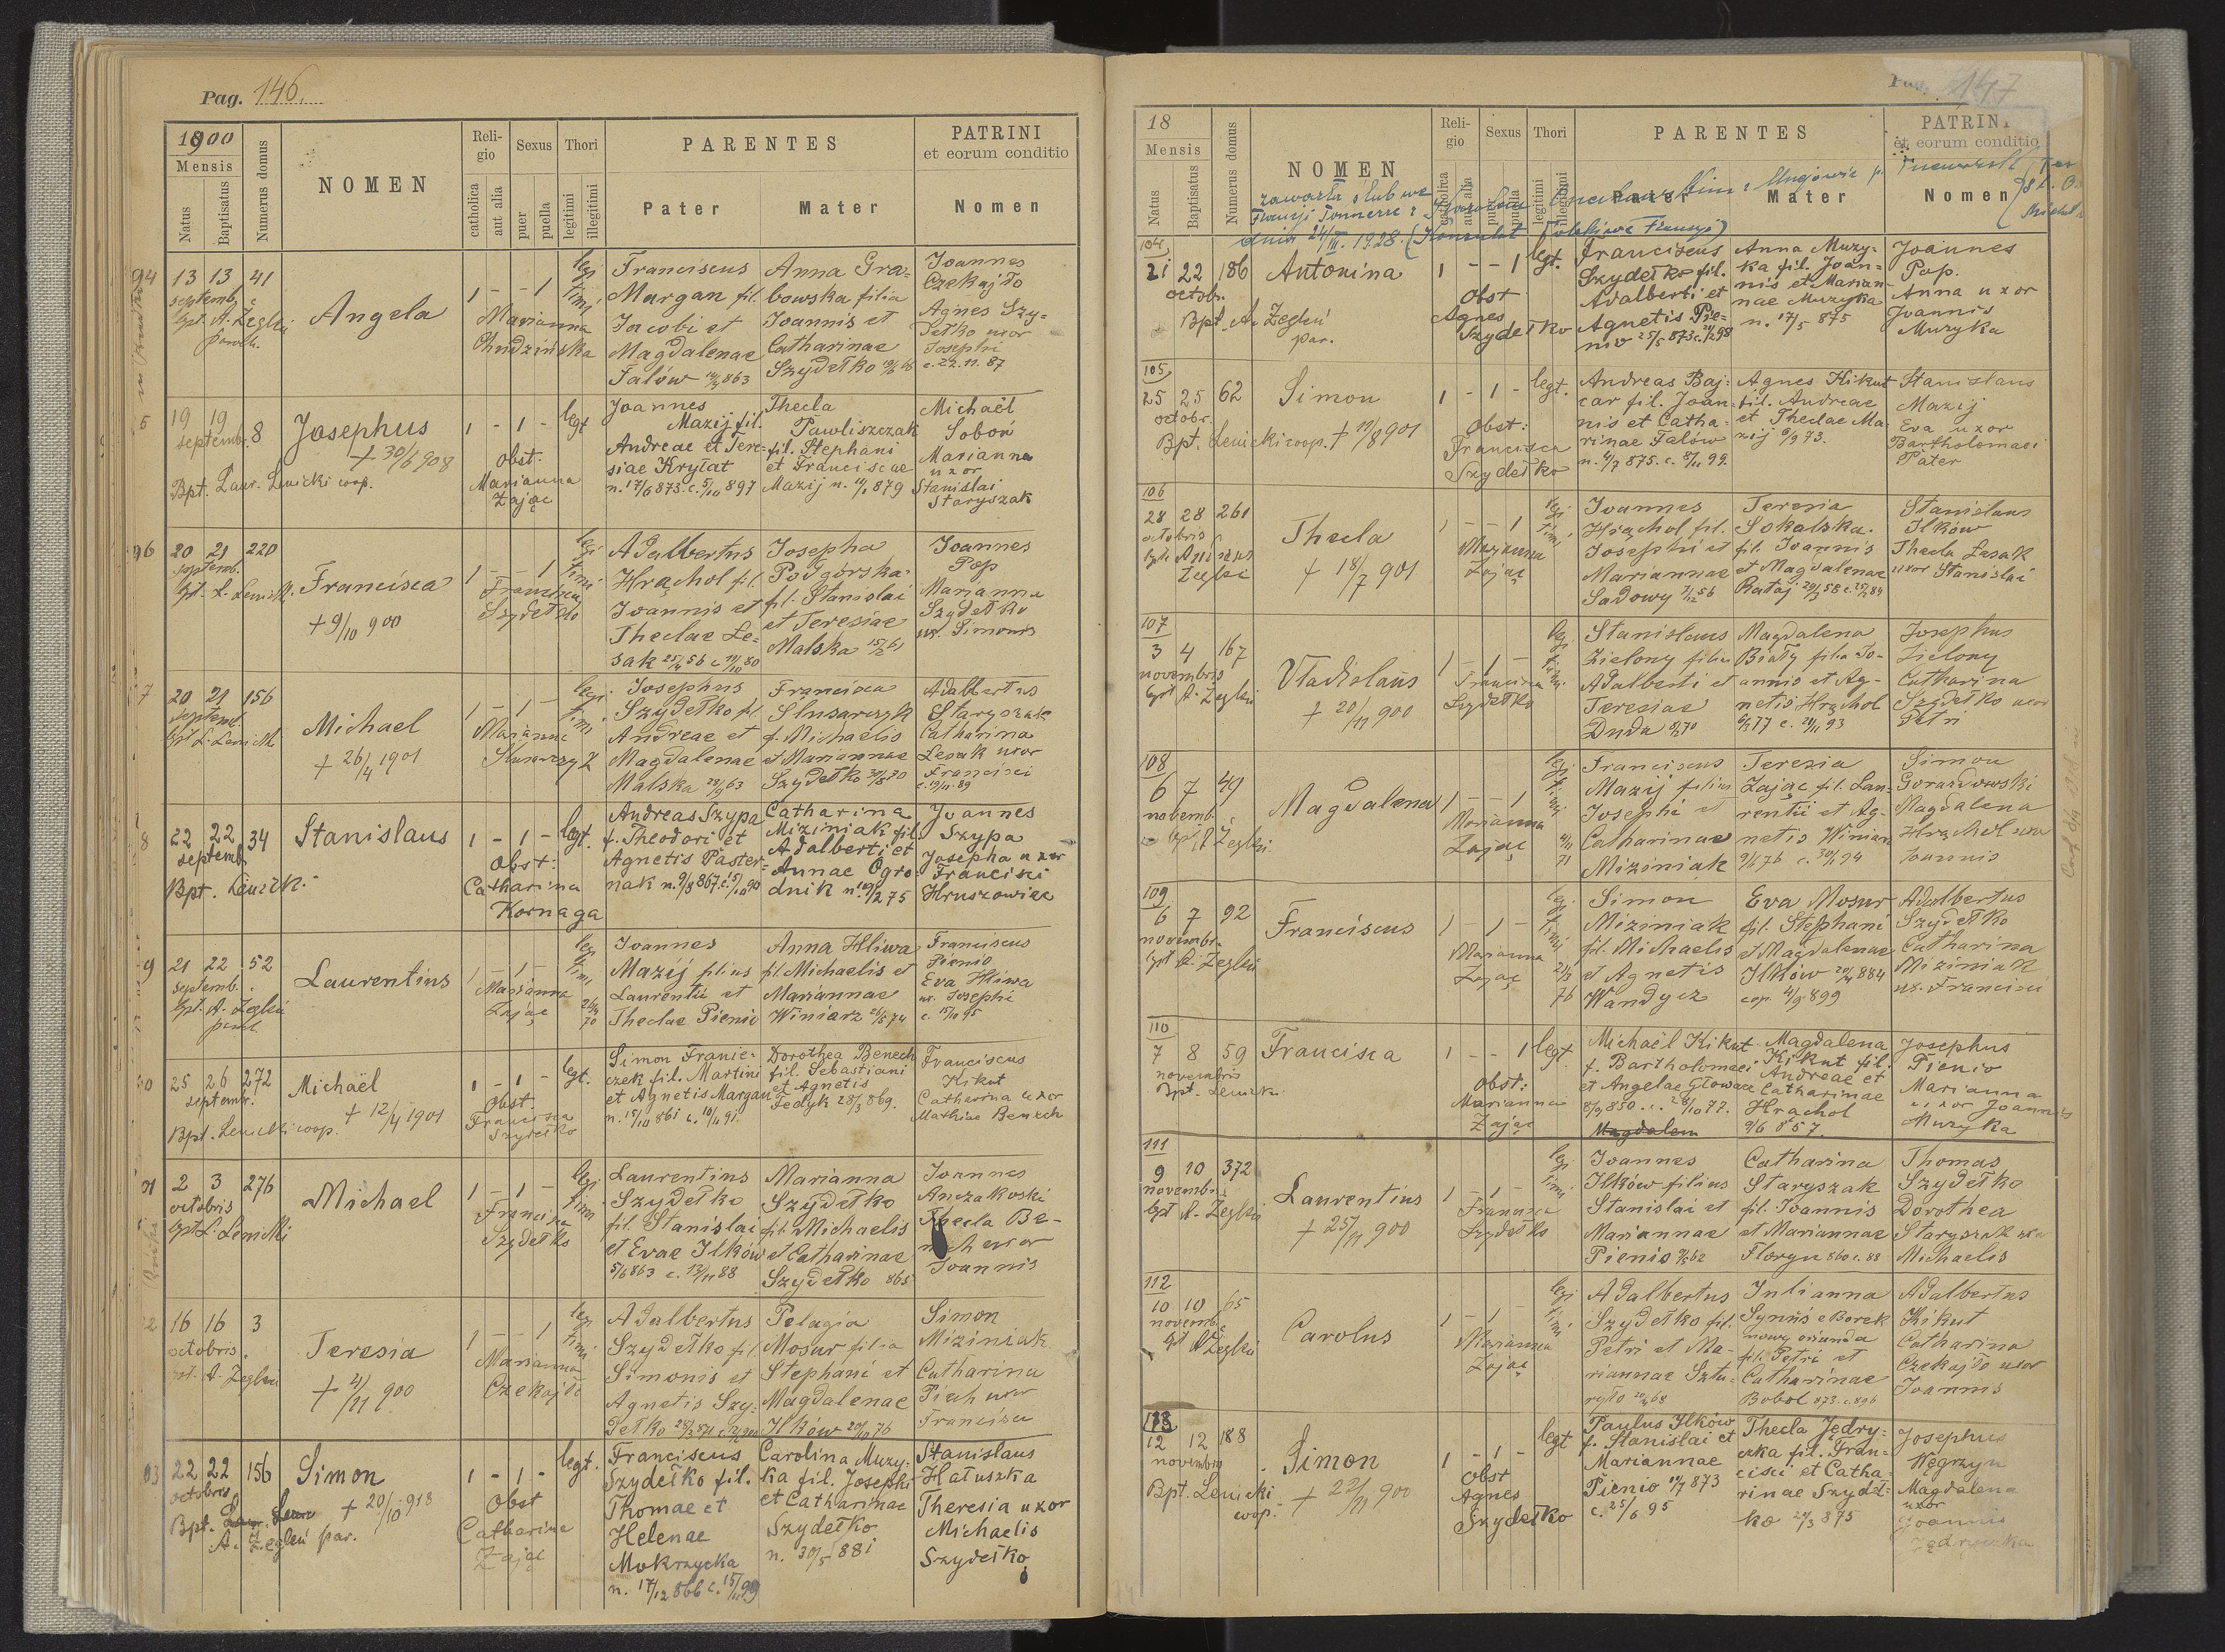 Pag. 146.
1900
Mensis
Natus
Baptisatus
Numerus domus
NOMEN
Religio
catholica
aut alia
Sexus
puer
puella
Thori
legitimi
illegitimi
PARENTES
Pater
Mater
PATRINI
et eorum conditio
Nomen
94 13 13 41
septemb.
bpt. A. Zegleń
paroch.
Angela
1 - - 1
Marianna
Chudzińska
legi
timi
Franciscus
Margan fil.
Jacobi et
Magdalenae
Falów
863
Anna Gra=
bowska filia
Joannis et
Catharinae
Szydełko
Joannes
Czekajło
Agnes Szy=
dełko uxor
Josephi
c. 22. 11. 87
5 19 19 8
septemb.
Bpt. Laur. Lenicki coop.
Josephus
+ 30/6 908
1 - 1 -
Obst:
Marianna
Zając
legt
Joannes
Mazij fil.
Andreae et Tere=
siae Kryłat
n. 17/6 873. c. 5/10 897
Thecla
Pawliszczak
fil. Stephani
et Franciscae
Mazij n. 879
Michaël
Soboń
Marianna
uxor
Stanislai
Staryszak
96 20 21 220
septemb.
bpt. L. Lenicki
Francisca
+ 9/10 900
1 - - 1
Francisca
Szydełko
legi
timi
Adalbertus
Hrąchol fil.
Joannis et
Theclae Le=
sak 56 c. 80
Josepha
Podgórska
fil. Stanislai
et Teresiae
Malska
Joannes
Pop
Marianna
Szydełko
ux. Simonis
7 20 21 156
septemb.
bpt L. Lenicki
Michael
+ 26/4 1901
1 - 1 -
Marianna
Slusarczyk
legi
timi
Josephus
Szydełko fil.
Andreae et
Magdalenae
Malska 63
Francisca
Slusarczyk
f. Michaëlis
et Mariannae
Szydełko
Adalbertus
Staryszak
Catharina
Lesak uxor
Francisci
8 22 22 34
septemb.
Bpt. Lenicki
Stanislaus
1 - 1 -
Obst:
Catharina
Kornaga
legt.
Andreas Szypa
f. Theodori et
Agnetis Paster=
nak n. 9/8 867. c.
Catharina
Miziniak fil.
Adalberti et
Annae Ogro=
dnik n. 875
Joannes
Szypa
Josepha uxor
Francisci
Hruszowiec
9 21 22 52
septemb.
bpt. A. Zegleń
Laurentius
1 - 1 -
Marianna
Zając
legi
timi
Joannes
Mazij filius
Laurentii et
Theclae Pienio
Anna Hliwa
fil. Michaelis et
Mariannae
Winiarz
Franciscus
Pienio
Eva Hliwa
ux. Josephi
25 26 272
septembr.
Bpt. Lenicki coop.
Michaël
+ 12/4 1901
1 - 1 -
Obst.
Francisca
Szydełko
legt.
Simon Franie=
czek fil. Martini
et Agnetis Margan
n. 15/10 861 c.
Dorothea Benech
fil. Sebastiani
et Agnetis
Fedyk 28/3 869.
Franciscus
Kikut
Catharina uxor
Mathiae Benech
2 3 276
octobris
bpt L. Lenicki
Michael
1 - 1 -
Francisca
Szydełko
legi
timi
Laurentius
Szydełko
fil. Stanislai
et Evae Ilków
5/6 863 c. 13/11 88
Marianna
Szydełko
fil. Michaelis
et Catharinae
Szydełko 865
Joannes
Anczakoski
Thecla Be-
uxor
Joannis
16 16 3
octobris
bpt. A. Zegleń
Teresia
900
1 - - 1
Marianna
Czekajło
legi
timi
Adalbertus
Szydełko fil.
Simonis et
Agnetis Szy=
dełko
Pelagia
Mosur filia
Stephani et
Magdalenae
Ilków 76
Simon
Miziniak
Catharina
Piech uxor
Francisci
22 22 156
octobris
Bpt.
A. Zegleń par.
Simon
+ 20/10 918
1 - 1 -
Obst
Catharina
Zając
legt.
Franciscus
Szydełko fil.
Thomae et
Helenae
Mokrzycka
n. 17/12 866 c.
Carolina Muzy=
ka fil. Josephi
et Catharinae
Szydełko
n. 30/5 881
Stanislaus
Hałuszka
Theresia uxor
Michaelis
Szydełko
147
18
Mensis
Natus
Baptisatus
Numerus domus
NOMEN
Religio
catholica
aut alia
Sexus
puer
puella
Thori
legitimi
illegitimi
PARENTES
Pater
Mater
PATRINI
et eorum conditio
Nomen
zawarła ślub we
Francji Tonnerre
dnia 24/III. 1928. (Konsulat
104
21 22 186
octobr.
Bpt. A. Zegleń
par.
Antonina
1 - - 1
Obst
Agnes
Szydełko
legt.
Franciscus
Szydełko fil.
Adalberti et
Agnetis Pie=
nio 25/5 873 c.
Anna Muzy=
ka fil. Joan=
nis et Marian=
nae Muzyka
n. 17/5 875
Joannes
Pop.
Anna uxor
Joannis
Muzyka
105
25 25 62
octobr.
Bpt. Lenicki coop.
Simon
+ 19/8 901
1 - 1 -
Obst:
Francisca
Szydełko
legt.
Andreas Baj=
car fil. Joan=
nis et Catha=
rinae Falów
n. 4/7 875. c. 8/11 99.
Agnes Kikut
fil. Andreae
et Theclae Ma
zij 73.
Stanislaus
Mazij
Eva uxor
Bartholomaei
Pater
106
28 28 261
octobris
Thecla
+ 18/7 901
1 - - 1
Marianna
Zając
legi
timi
Joannes
Hrąchol fil.
Josephi et
Mariannae
Sadowy 56
Teresia
Sokalska
fil. Joannis
et Magdalenae
Rataj
Stanislaus
Ilków
Thecla Lesak
uxor Stanislai
107
3 4 167
novembris
bpt A. Zegleń
Vladislaus
+ 20/11 900
1 - 1 -
Francisca
Szydełko
legi
timi
Stanislaus
Zielony filius
Adalberti et
Teresiae
Duda 70
Magdalena
Biały filia Jo-
annis et Ag-
netis Hrąchol
77 c. 93
Josephus
Zielony
Catharina
Szydełko uxor
Petri
108
6 7 49
nobemb.
Magdalena
1 - - 1
Marianna
Zając
legi
timi
Franciscus
Mazij filius
Josephi et
Catharinae
Miziniak
Teresia
Zając fil. Lau-
rentii et Ag-
netis Winiarz
76 c. 94
Simon
Gorazdowski
Magdalena
Hrąchol uxor
Joannis
109
6 7 92
novembr.
bpt A. Zegleń
Franciscus
1 - 1 -
Marianna
Zając
legi
timi
Simon
Miziniak
fil. Michaelis
et Agnetis
Wandycz
Eva Mosur
fil. Stephani
et Magdalenae
Ilków 884
cop. 899
Adalbertus
Szydełko
Catharina
Miziniak
ux. Francisci
110
7 8 59
novembris
Bpt. Lenicki
Francisca
1 - - 1
Obst:
Marianna
Zając
legt
Michaël Kikut
f. Bartholomaei
et Angelae Głowacz
850. c. 28/10 77.
Magdalem
Magdalena
Kikut fil.
Andreae et
Catharinae
Hrąchol
9/6 857.
Josephus
Pienio
Marianna
uxor Joannis
Muzyka
111
9 10 372
novembr.
bpt A. Zegleń
Laurentius
+ 25/11 900
1 - 1 -
Francisca
Szydełko
legi
timi
Joannes
Ilków filius
Stanislai et
Mariannae
Pienio 62
Catharina
Staryszak
fil. Joannis
et Mariannae
Floryn 860 c. 88
Thomas
Szydełko
Dorothea
Staryszak uxor
Michaelis
112
10 10 65
novemb.
bpt A Zegleń
Carolus
1 - 1 -
Marianna
Zając
legi
timi
Adalbertus
Szydełko fil.
Petri et Ma-
riannae Sztu-
ryło 68
Julianna
Synüś e Borek
nowy oriunda
fil. Petri et
Catharinae
Bobol 873. c. 896
Adalbertus
Kikut
Catharina
Czekajło uxor
Joannis
113
12 12 188
novembris
Bpt. Lenicki
coop.
Simon
+ 22/11 900
1 - 1 -
Obst
Agnes
Szydełko
legt
Paulus Ilków
f. Stanislai et
Mariannae
Pienio 873
c. 25/6 95
Thecla Jędry=
czka fil. Fran=
cisci et Catha=
rinae Szydeł=
ko 27/3 875
Josephus
Węgrzyn
Magdalena
uxor
Joannis
Jędryczka